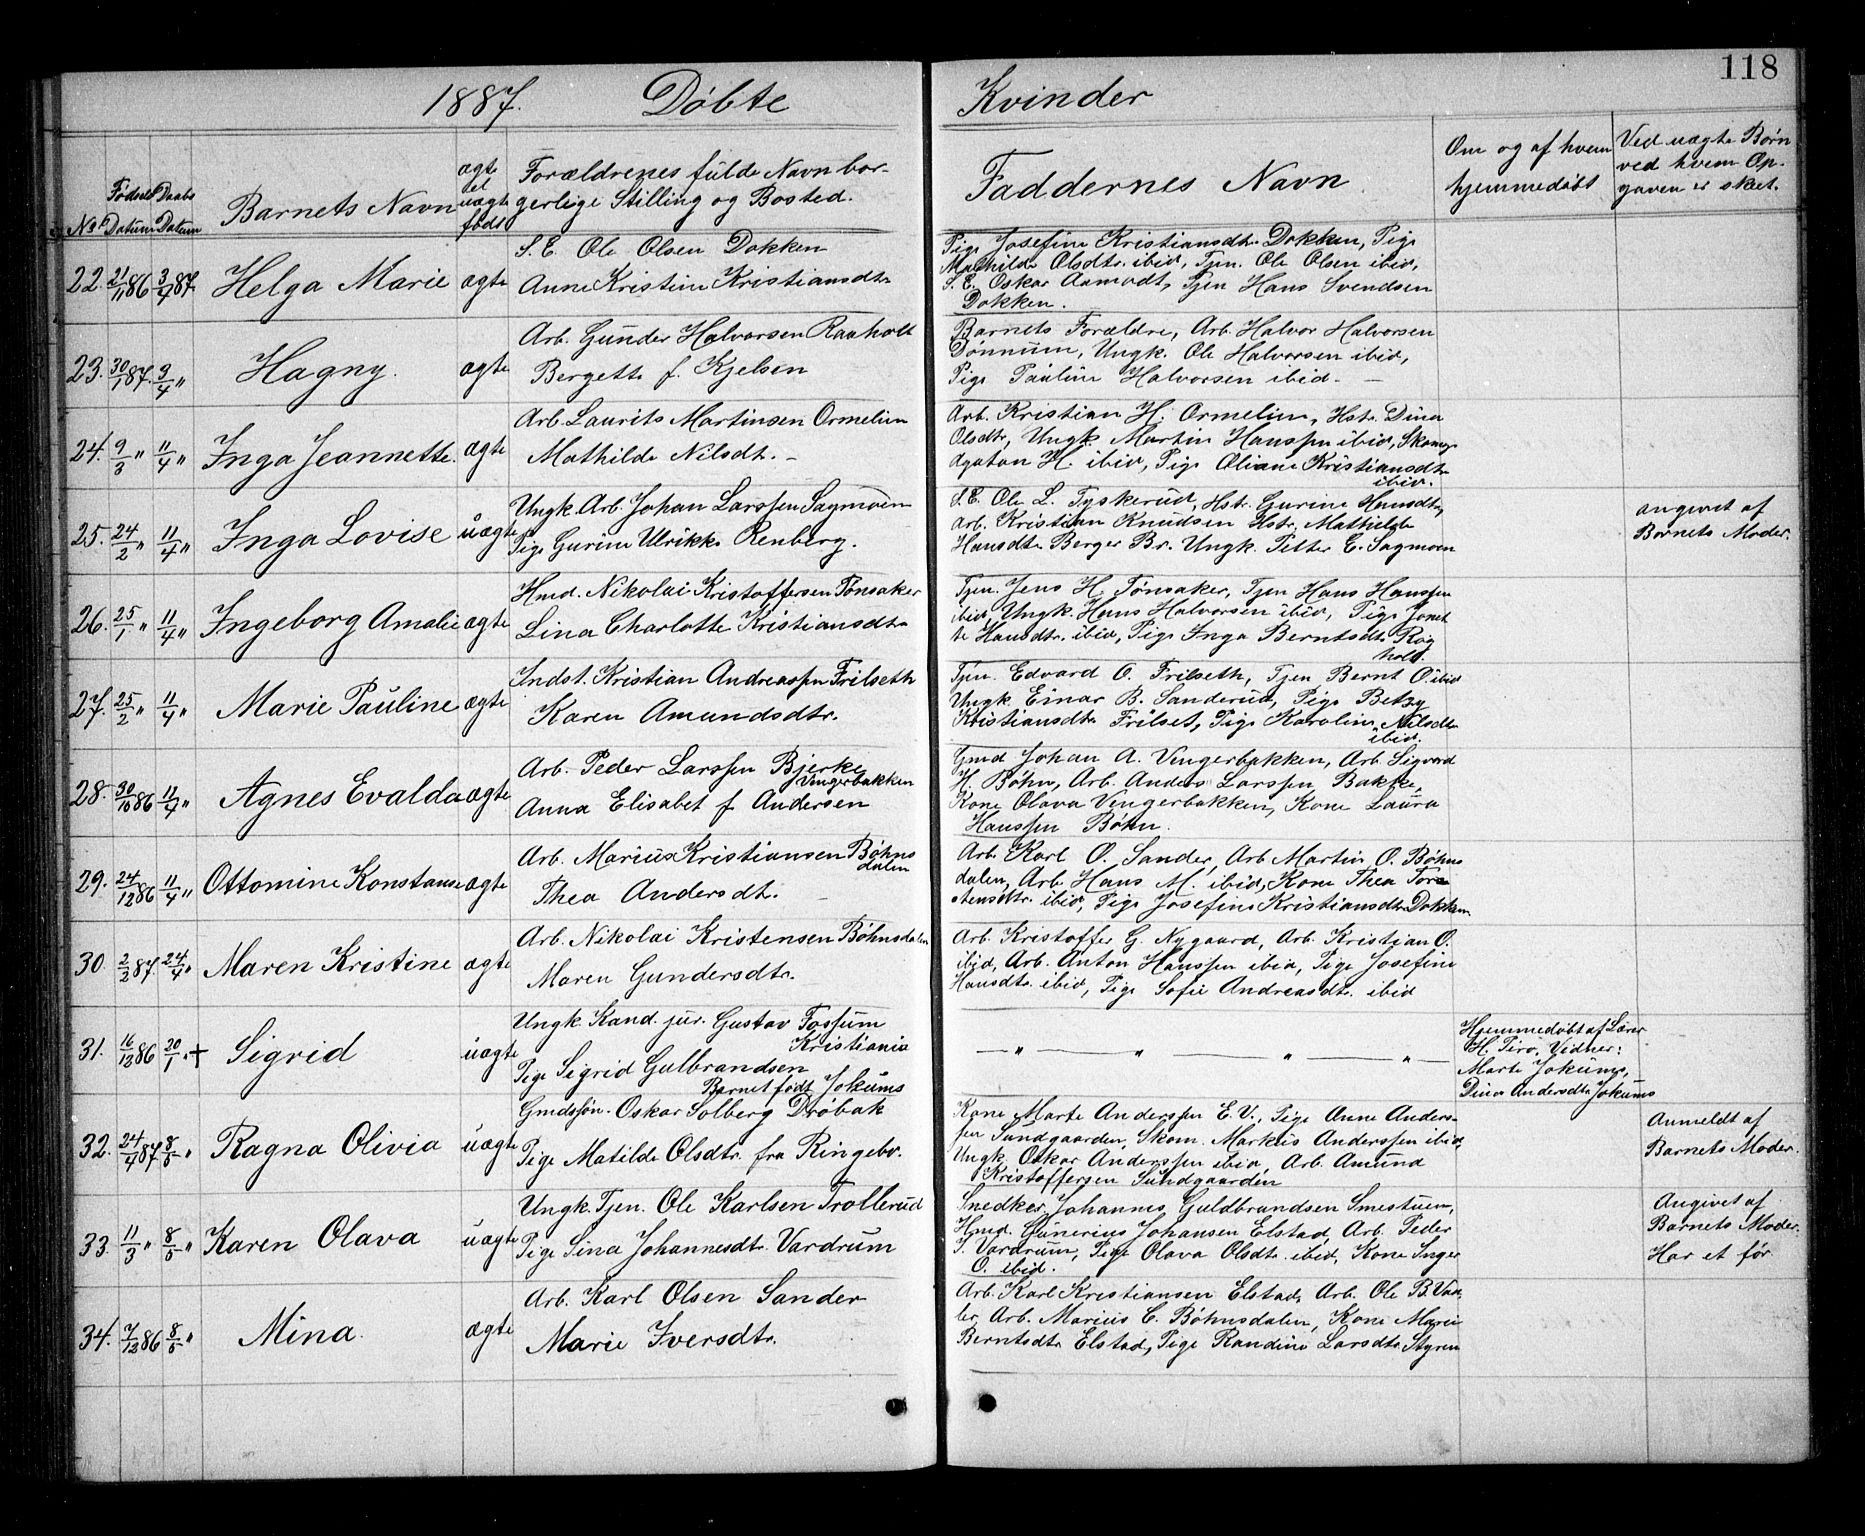 118
1887. Döbte Kvinder
No Födsels Datum Daabs Datum Barnets Navn ægte el uægte födt Forældrenes fulde Navn bor-
gerlige Stilling og Bosted.
Faddernes Navn
Om og af hvem
hjemmedöbt
Ved uægte Börn
ved hvem Op-
gaven er skeet.
22. 21/11 86 3/4 87. Helga Marie ægte
S. E. Ole Olsen Dokken
Anne Kristine Kristiansdtr
Pige Josefine Kristiansdtr. Dokken, Pige
Mathilde Olsdtr. ibid, Tjen. Ole Olsen ibid,
S. E. Oskar Aamodt, Tjen Hans Svendsen
Dokken.
23. 30/1 87. 9/4 " Hagny. ægte
Arb. Gunder Halvorsen Raaholt
Bergette f. Kjelsen
Barnets Forældre, Arb. Halvor Halvorsen
Dönnum, Ungk. Ole Halvorsen ibid,
Pige Pauline Halvorsen ibid. —
24. 9/3 " 11/4 " Inga Jeannette. ægte
Arb. Laurits Martinsen Ormelien
Mathilde Nilsdt. –
Arb. Kristian H. Ormelien, Hstr. Dina
Olsdtr, Ungk. Martin Hanssen ibid, Skomgr
Agaton H. ibid, Pige Oliane Kristiansdtr
ibid.
25. 24/2 " 11/4 " Inga Lovise uægte
Ungk. Arb. Johan Larssen Sagmoen
Pige Gurine Ulrikke Renberg.
S. E. Ole L. Tyskerud, Hstr. Gurine Hansdtr,
Arb. Kristian Knudsen Hstr. Mathilde
Hansdtr Berger Br. Ungk. Petter E. Sagmoen
angivet af
Barnets Moder.
26. 25/1 " 11/4 " Ingeborg Amalie ægte
Hmd. Nikolai Kristoffersen Tönsaker
Lina Charlotte Kristiansdtr
Tjen. Jens H. Tönsaker, Tjen Hans Hanssen
ibid, Ungk. Hans Halvorsen ibid, Pige Janet
te Hansdtr. ibid, Pige Inga Berntsdtr Rög
hold.
27. 25/2 " 11/4 " Marie Pauline ægte
Indst. Kristian Andreassen Frilseth
Karen Amundsdtr.
Tjen. Edvard O. Frilseth, Tjen Bernt O. ibid
Ungk Einar B. Sanderud, Pige Betzy
Kristiansdtr Frilset, Pige Karoline Nilsdtr
ibid.
28. 30/10 86 11/4 " Agnes Evalda ægte
Arb. Peder Larssen Bjerke
Vengerbakken
Anna Elisabet f Andersen
Gmd Johan A. Vengerbakken, Arb. Sigvard
H. Böhn, Arb. Anders Larssen Bakke,
Kone Olava Vengerbakken, Kone Laura
Hanssen Böhn.
29. 24/12 86 11/4 " Ottomine Konstanse ægte
Arb. Marius Kristiansen Böhns
dalen
Thea Andersdt. –
Arb. Karl O. Sander, Arb Martin O. Böhns
dalen, Arb. Hans M. ibid, Kone Thea Tor
stensdtr. ibid, Pige Josefine Kristiansdtr Dokken
30. 2/2 87. 24/4 " Maren Kristine ægte
Arb. Nikolai Kristensen Böhnsdalen
Maren Gundersdtr.
Arb. Kristoffer G. Nygaard, Arb. Kristian O.
ibid, Arb. Anton Hanssen ibid, Pige Josefine
Hansdtr. ibid, Pige Sofie Andreasdtr. ibid
31. 16/12 86 20/1 " + Sigrid uægte
Ungk. Kand. jur. Gustav Fossum
Kristiania
Pige Sigrid Gulbrandsen
Barnet födt Jokums
— " — " — " — " —
Hjemmedöbt af Lærer
H. Piro. Vidner:
Marte Jokums,
Dina Andersdtr Jokums
32. 24/4 87 8/5 " Ragna Olivia uægte
Gmdssön. Oskar Solberg Dröbak
Pige Matilde Olsdtr. fra Ringebo.
Kone Marte Anderssen E. V., Pige Anne Anders-
sen Sundgaarden, Skom. Markus Anderssen ibid,
Ungk. Oskar Anderssen ibid, Arb. Amund
Kristoffersen Sundgaarden
Anmeldt af
Barnets Moder.
33. 11/3 " 8/5 " Karen Olava uægte
Ungk. Tjen. Ole Karlsen Trollerud
Pige Sina Johannesdtr. Vardrum
Snedker Johannes Guldbrandsen Smestuen,
Hmd. Gunerius Johansen Elstad, Arb. Peder
P. Vardrum, Pige Olava Olsdtr. ibid, Kone Inger
O. ibid.
Angivet af
Barnets Moder.
Har et för
34. 7/12 86 8/5 " Mina. ægte
Arb. Karl Olsen Sander
Marie Iversdtr.
Arb. Karl Kristiansen Elstad, Arb. Ole B. Vax
ler, Arb. Marius C. Böhnsdalen, Kone Marie
Berntsdtr Elstad, Pige Randine Larsdtr. Styren